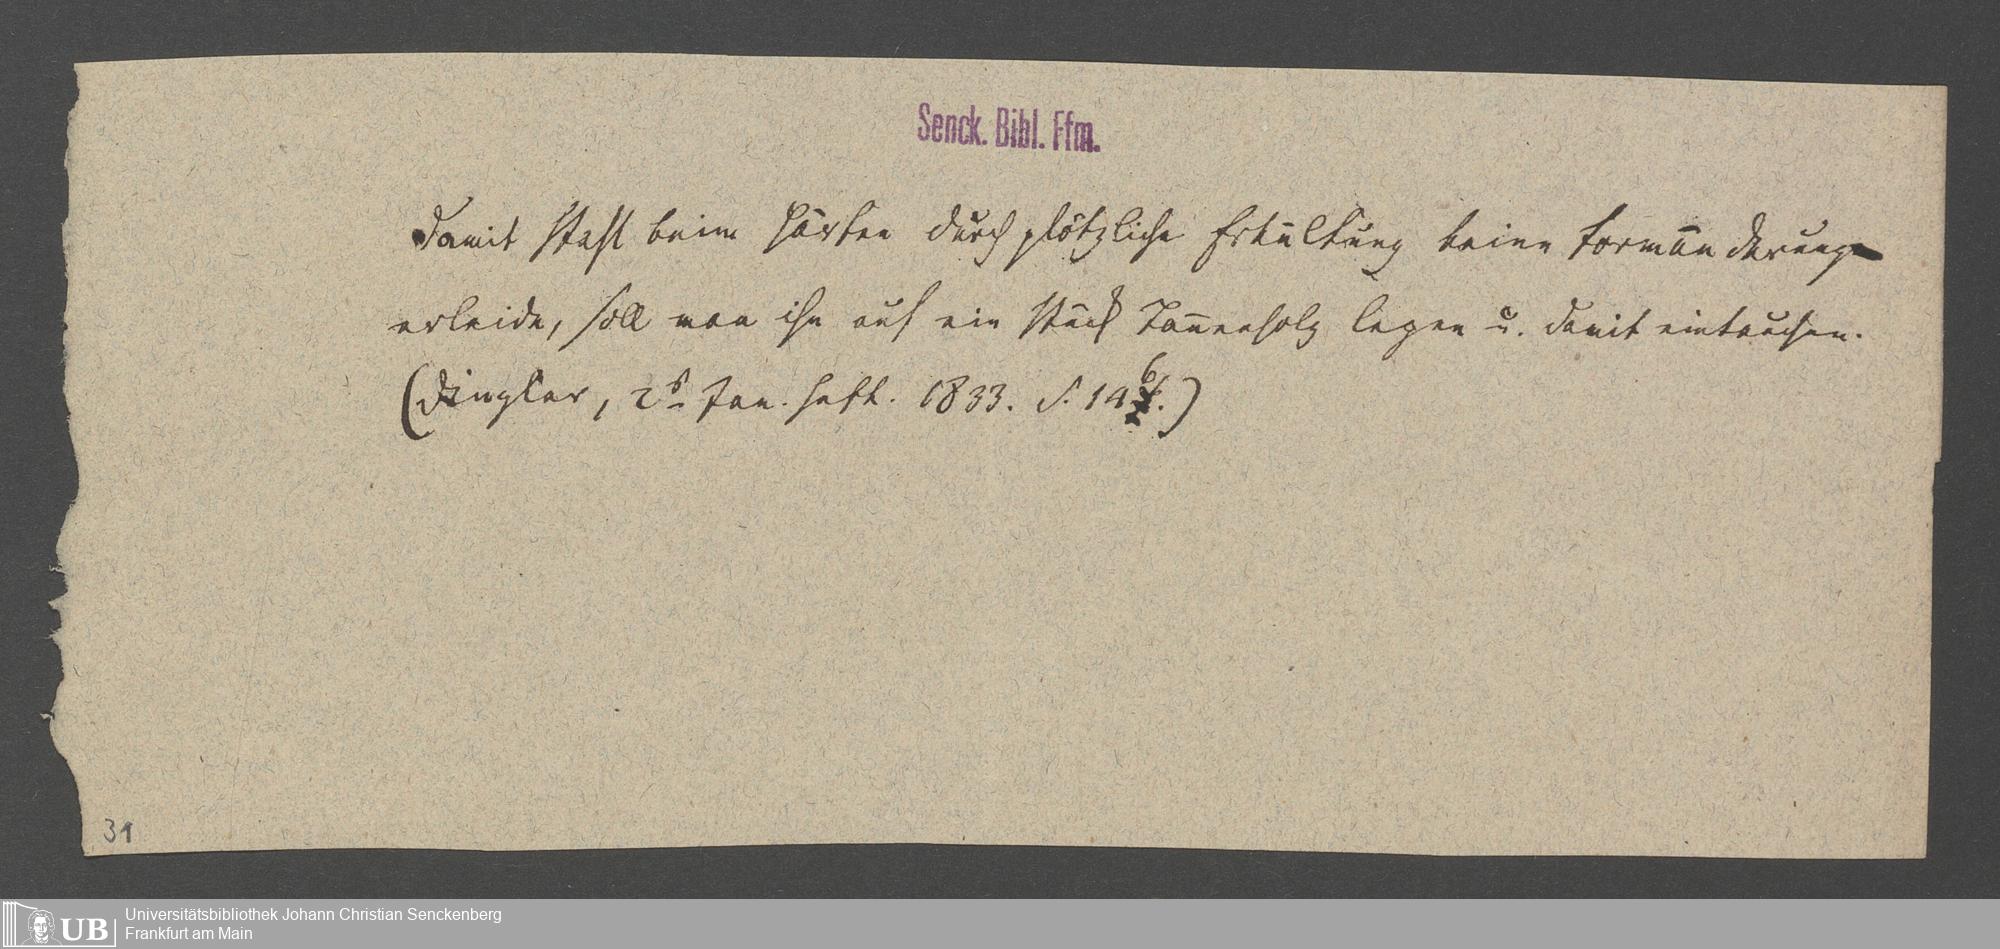 Senck. Bibl. Ffm.
Damit Stahl beim Härten durch plötzliche Erkältung keine Formänderung
erleide, soll man ihn auf ein Stück Tannenholz legen u. damit eintauchen.
(Dingler, 2s Jan. Heft. 1833. S. 146.)
31
UB
Universitätsbibliothek Johann Christian Senckenberg
Frankfurt am Main